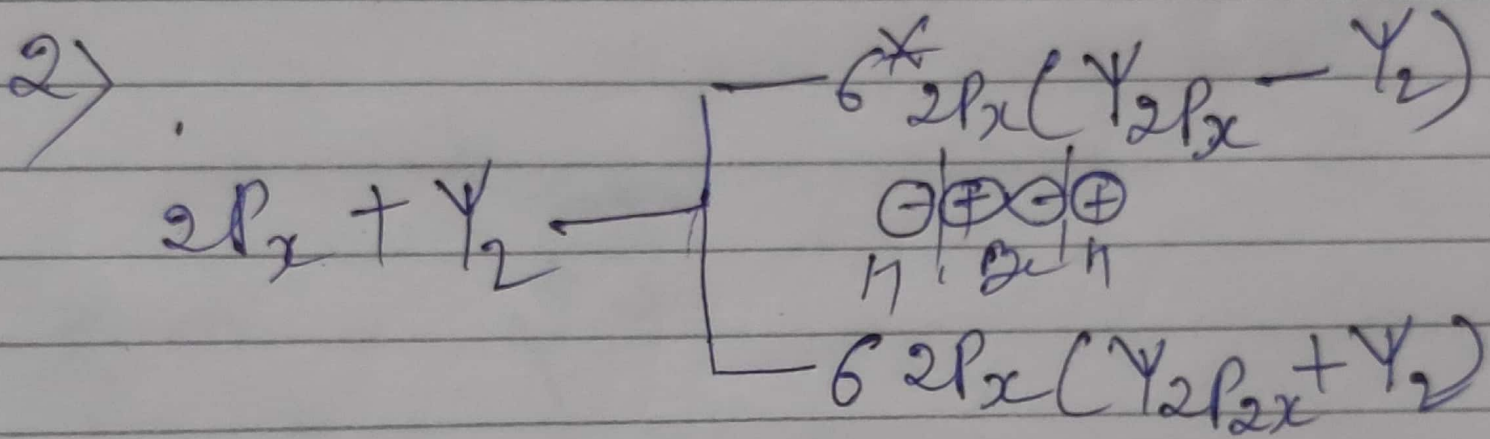 2>
6*2Px(Ψ2Px - Ψ2)
2Px + Ψ2
- + - +
H Be H
6 2Px(Ψ2P2x + Ψ2)